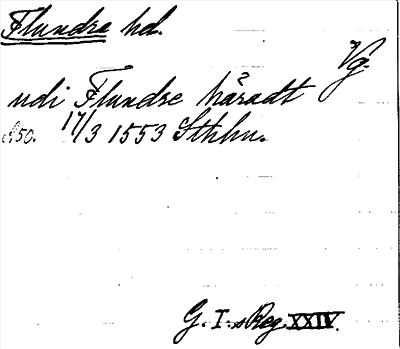 Flundre hd.
Vg.
udi Flundre håradt
s. 50. 17/3 1553 Sthlm.
G. I:s Reg. XXIV.